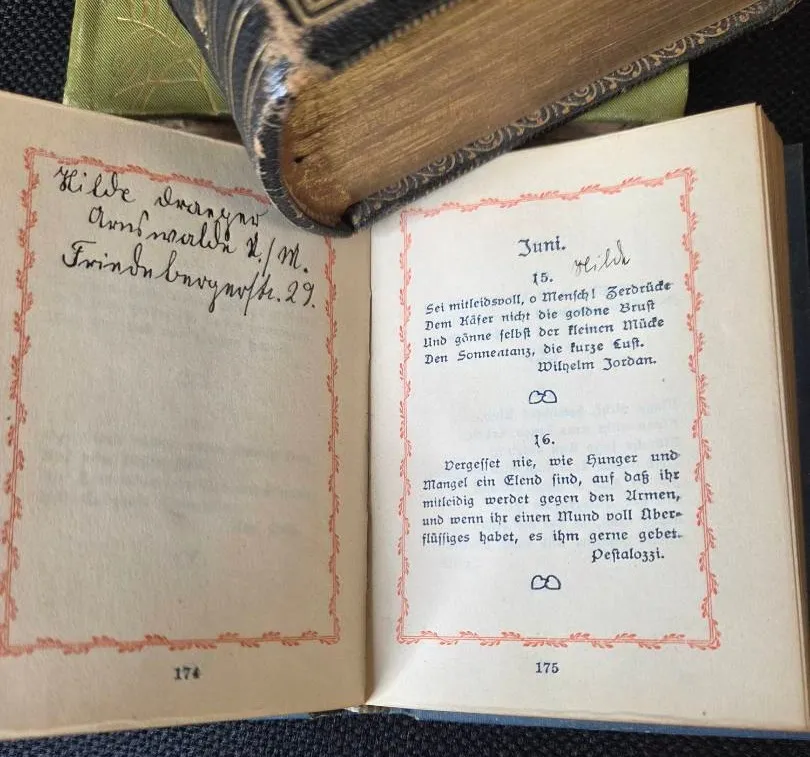 Hilde Draeger
Arnswalde N./M.
Friedebergerstr. 29.
174
Juni.
15.
Hilde
Sei mitleidsvoll, o Mensch! Zerdrücke
Dem Käfer nicht die goldne Brust
Und gönne selbst der kleinen Mücke
Den Sonnentanz, die kurze Lust.
Wilhelm Jordan.
16.
Vergesset nie, wie Hunger und
Mangel ein Elend sind, auf daß ihr
mitleidig werdet gegen den Armen,
und wenn ihr einen Mund voll Über-
flüssiges habet, es ihm gerne gebet.
Pestalozzi.
175